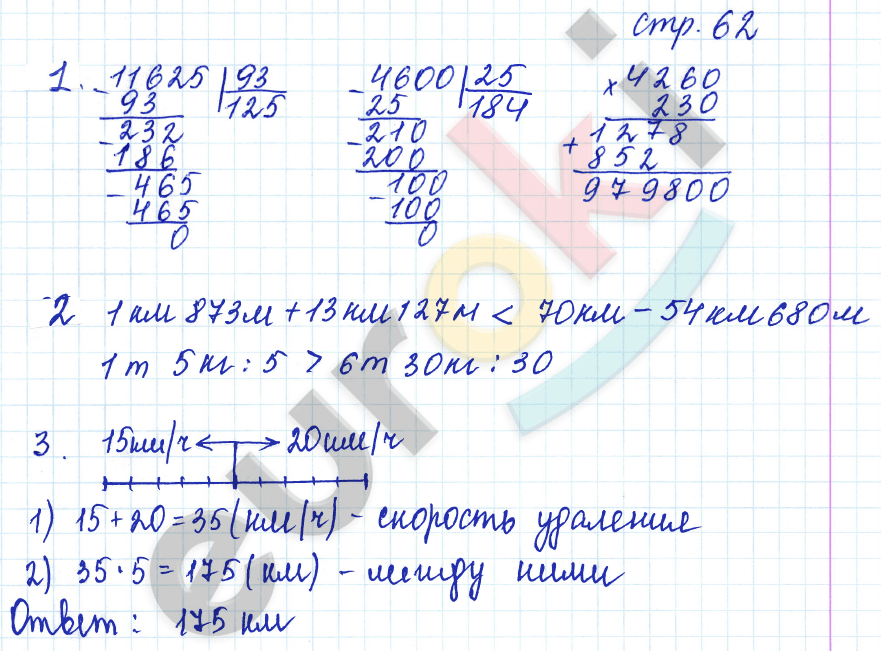 стр. 62
1. -11625 | 93
93 125
-232
186
-465
465
0
-4600 | 25
25 184
-210
200
-100
100
0
×4260
230
+1278
852
979800
2 1 км 873м + 13 км 127м < 70км - 54 км 680м
1 т 5 кг : 5 > 6т 30кг : 30
3. 15км/ч ← → 20 км/ч
1) 15 + 20 = 35 (км/ч) - скорость удаления
2) 35 · 5 = 175 (км) - между ними
Ответ : 175 км
euroki